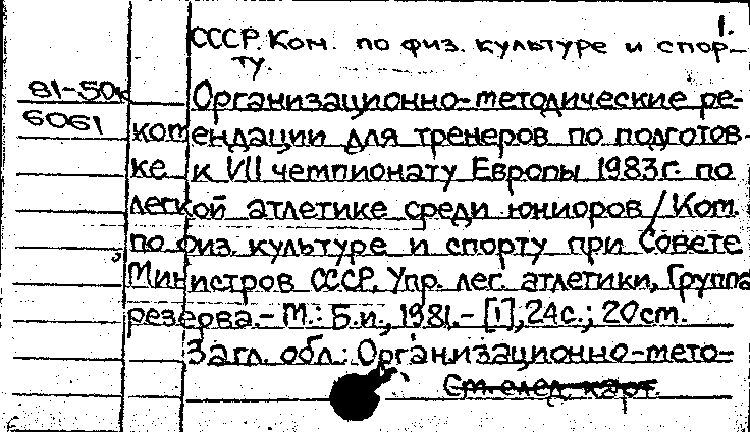 1.
СССР. Ком. по физ. культуре и спор-
ту.
81-50к
6061
Организационно-методические ре-
комендации для тренеров по подготов-
ке к VII чемпионату Европы 1983г. по
легкой атлетике среди юниоров / Ком.
по физ. культуре и спорту при Совете
Министров СССР, Упр. лег. атлетики, Группа
резерва. - М.: Б.и., 1981. - [1], 24с.; 20см.
Загл. обл.: Организационно-мето-
См. след. карт.